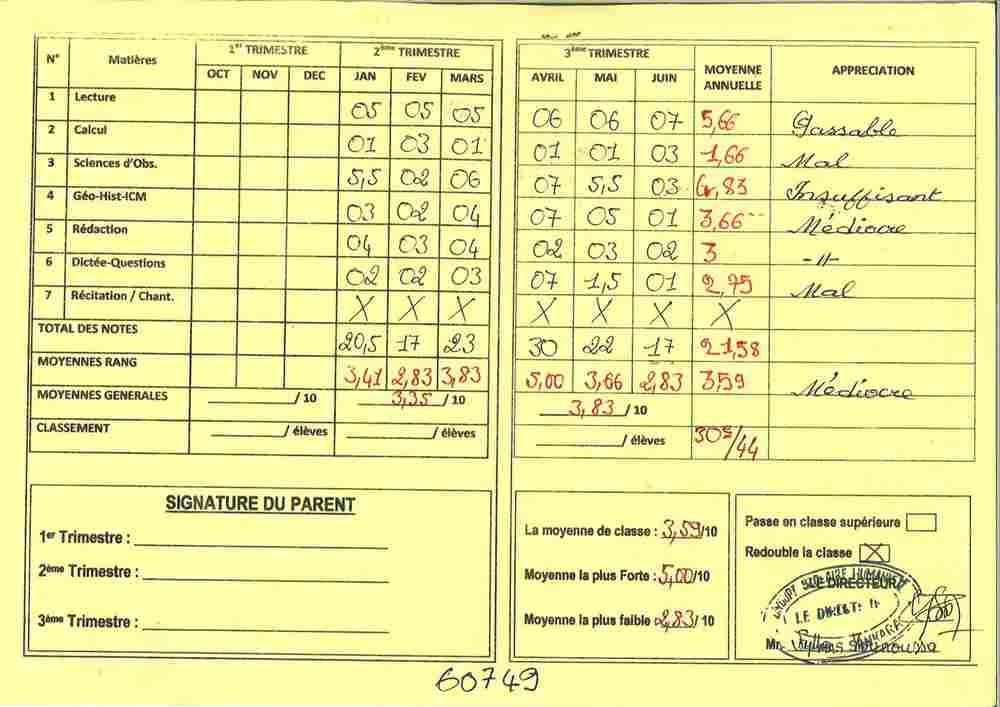 N° Matières 1er TRIMESTRE 2ème TRIMESTRE
OCT NOV DEC JAN FEV MARS
1 Lecture 05 05 05
2 Calcul 01 03 01
3 Sciences d'Obs. 5,5 02 06
4 Géo-Hist-ICM 03 02 04
5 Rédaction 04 03 04
6 Dictée-Questions 02 02 03
7 Récitation / Chant. X X X
TOTAL DES NOTES 20,5 17 23
MOYENNES RANG 3,41 2,83 3,83
MOYENNES GENERALES ______ / 10 3,35 / 10
CLASSEMENT ______ / élèves ______ / élèves
3ème TRIMESTRE MOYENNE ANNUELLE APPRECIATION
AVRIL MAI JUIN
06 06 07 5,66 Passable
01 01 03 1,66 Mal
07 5,5 03 4,83 Insuffisant
07 05 01 3,66 Médiocre
02 03 02 3 -//-
07 1,5 01 2,75 Mal
X X X X
30 22 17 21,58
5,00 3,66 2,83 3,59 Médiocre
3,83 / 10
______ / élèves 30e/44
SIGNATURE DU PARENT
1er Trimestre : ______
2ème Trimestre : ______
3ème Trimestre : ______
La moyenne de classe : 3,59/10
Moyenne la plus Forte : 5,00/10
Moyenne la plus faible 2,83 / 10
Passe en classe supérieure
Redouble la classe X
LE DIRECTEUR
LE DIRECT
Mr.
60749